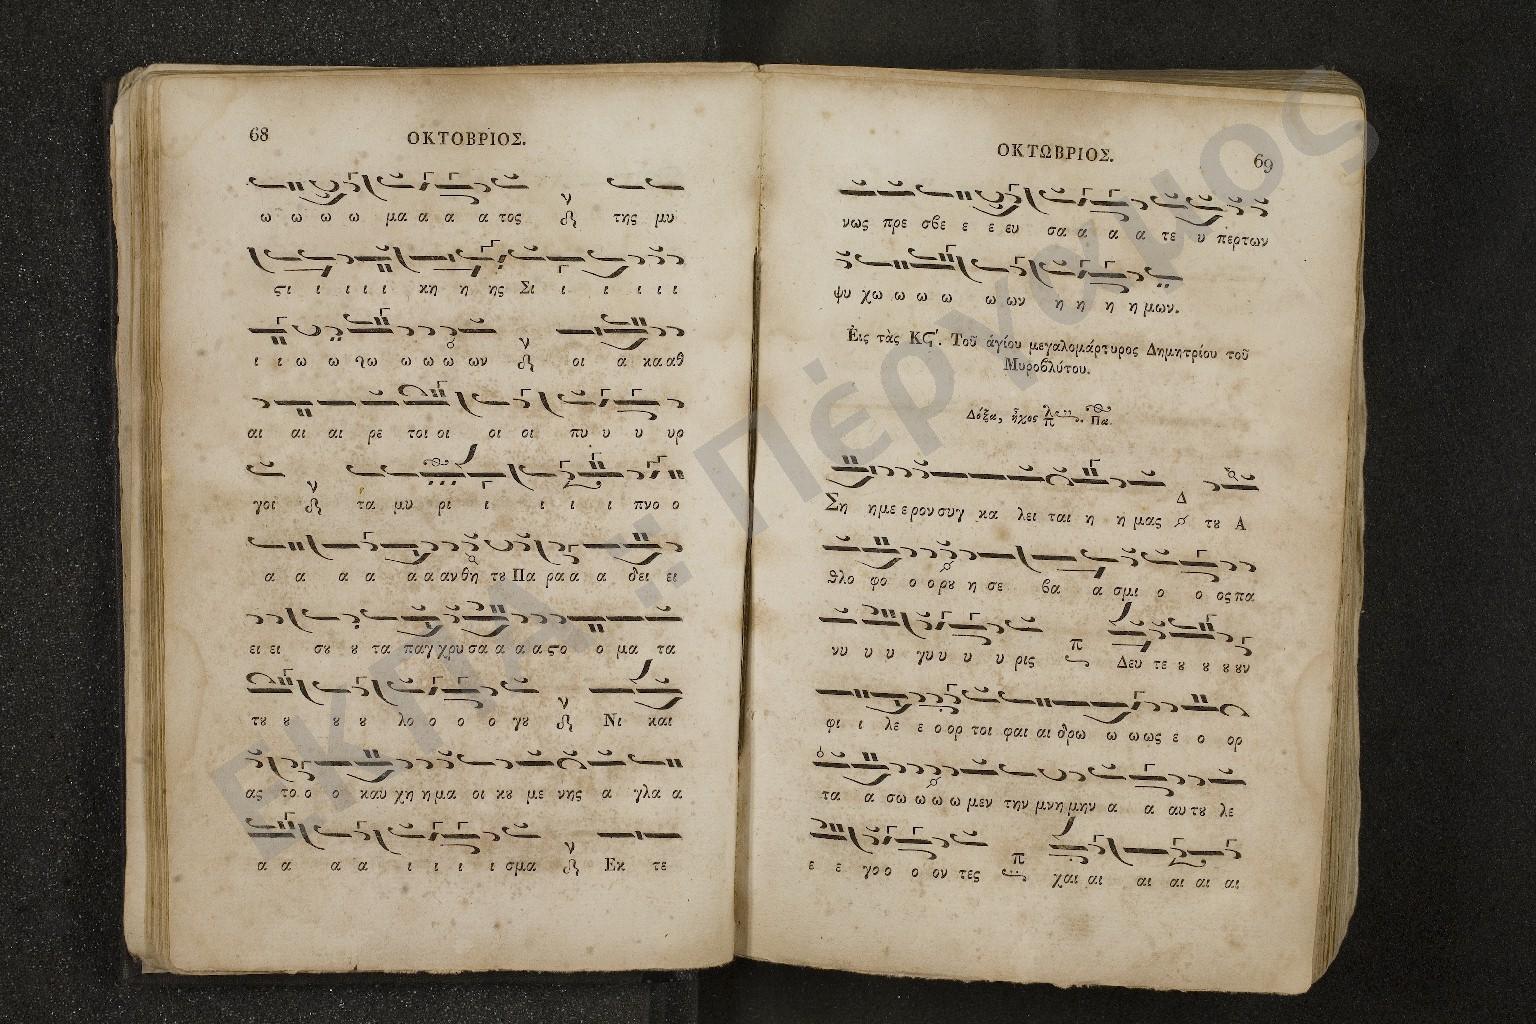 68
ΟΚΤΟΒΡΙΟΣ.
ω ω ω ω μα α α α τος της μυ
ϛι ι ι ι ι κη η ης Σι ι ι ι ι ι
ι ι ω ω ω ω ω ω ων οι α κα αθ
αι αι αι ρε τοι οι οι οι πυ υ υ υρ
γοι τα μυ ρι ι ι ι ι πνο ο
α α α α α α αν θη τȣ Πα ρα α α δει ει
ει ει σȣ ȣ τα παγ χρυ σα α α α ϛο ο μα τα
τȣ ȣ ȣ ȣ λο ο ο ο γȣ Νι και
ας το ο ο καυ χη η μα οι κȣ με νης α γλα α
α α α α ι ι ι ι σμα Εκ τε
ΟΚΤΩΒΡΙΟΣ.
69
νως πρε σβε ε ε ευ σα α α α τε υ περ των
ψυ χω ω ω ω ω ων η η η η μων.
Ἐις τὰς Κϛ'. Τοῦ ἁγίου μεγαλομάρτυρος Δημητρίου τοῦ
Μυροβλύτου.
Δόξα, ἦχος Πα
Ση ημε ε ρον συγ κα λει ται η η μας Δ τȣ Α
θλο φο ο ο ρȣ η σε βα α σμι ο ο ος πα
νυ υ υ γυ υ υ υ ρις π Δευ τε ȣ ȣ ȣ ȣν
φι ι λε ε ο ορ τοι φαι αι δρω ω ω ως ε ο ορ
τα α σω ω ω ω μεν την μνη μην α α αυ τȣ λε
ε ε γο ο ο ον τες π χαι αι αι αι αι αι
ΕΚΠΑ :: Πέργαμος